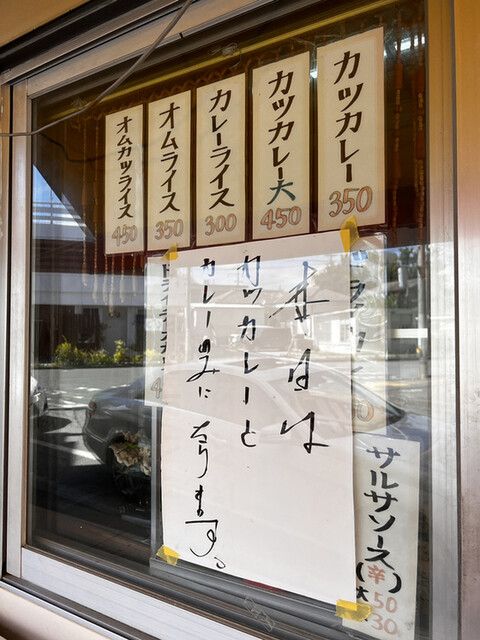 カツカレー
350
カツカレー大
450
カレーライス
300
オムライス
350
オムカツライス
450
本日は
カツカレーと
カレーのみに
なります。
サルサソース
(辛)
50
30